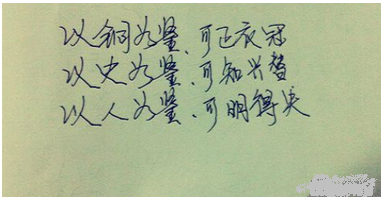 以铜为鉴、可正衣冠
以史为鉴、可知兴替
以人为鉴、可明得失